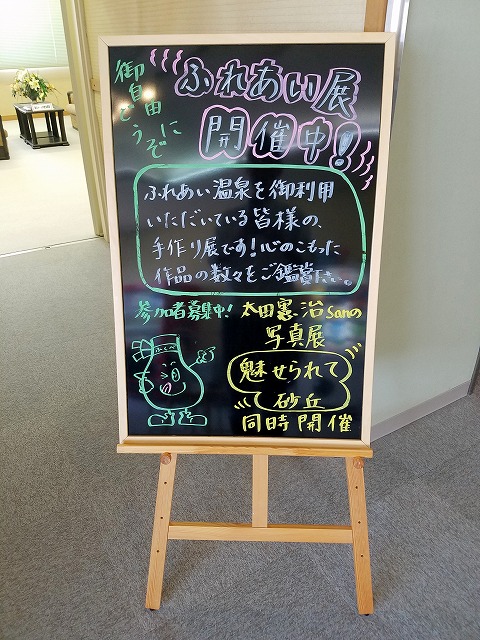 御自由に
どうぞ
ふれあい展
開催中!
ふれあい温泉を御利用
いただいている皆様の、
手作り展です!心のこもった
作品の数々をご鑑賞下さい。
参加者募集中!
太田憲治sanの
写真展
魅せられて
砂丘
同時開催